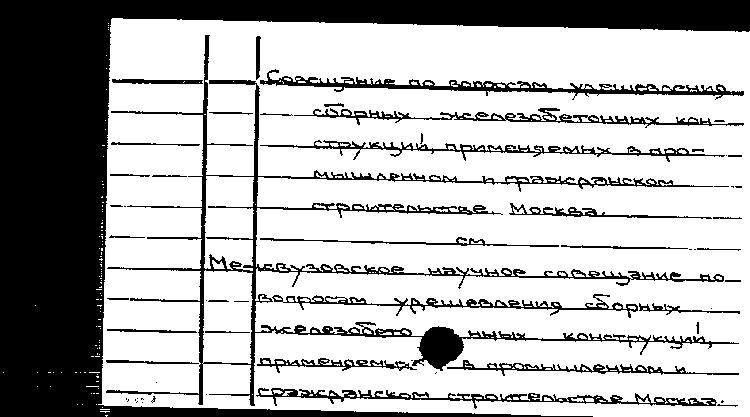 Совещание по вопросам удешевления
сборных железобетонных кон-
струкций, применяемых в про-
мышленном и гражданском
строительстве. Москва.
см
Межвузовское научное совещание по
вопросам удешевления сборных
железобетонных конструкций,
применяемых в промышленном и
гражданском строительстве Москва.